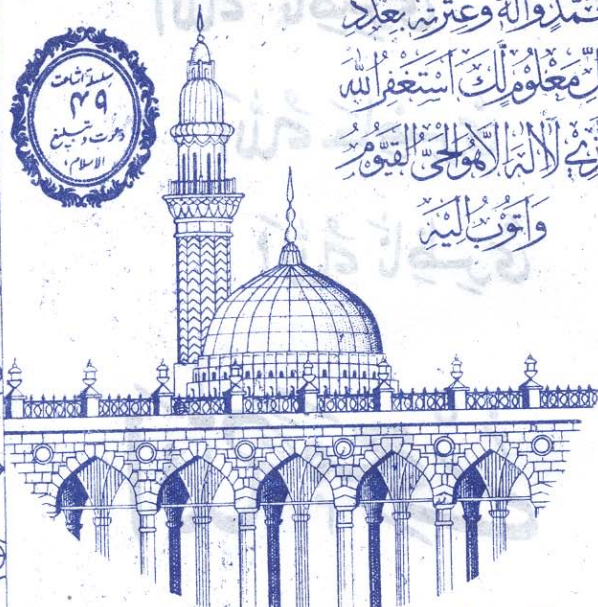 سلسلۂ اشاعت
۴۹
دعوت و تبلیغ
الاسلام،
حَمَّدٍ وَّاٰلِهٖ وَعِتْرَتِهٖ بِعَدَدِ
لِّ مَعْلُوْمٍ لَّكَ اَسْتَغْفِرُ اللهَ
الَّذِيْ لَآ اِلٰهَ اِلَّا هُوَ الْحَىُّ الْقَيُّوْمُ
وَاَتُوْبُ اِلَيْهِ